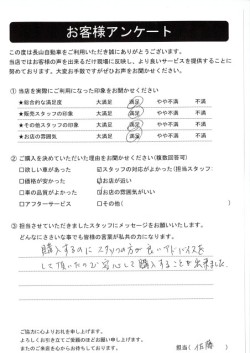 お客様アンケート
この度は長山自動車をご利用いただき誠にありがとうございます。
当店ではお客様の声を出来るだけ現場に反映し、より良いサービスを提供することに
努めております。大変お手数ですがぜひお声をお聞かせください。
① 当店を実際にご利用になった印象をお聞かせください。
★総合的な満足度 大満足 満足 やや不満 不満
★販売スタッフの印象 大満足 満足 やや不満 不満
★その他スタッフの印象 大満足 満足 やや不満 不満
★お店の雰囲気 大満足 満足 やや不満 不満
② ご購入を決めていただいた理由をお聞かせください（複数回答可）
□欲しい車があった ☑スタッフの対応がよかった（担当スタッフ：
□価格が安かった ☑お店が近い
□車の品質がよかった □お店の雰囲気がいい
□アフターサービス □その他（ ）
③ 担当させていただきましたスタッフにメッセージをお願いいたします。
どんなにささいな事でも皆様の言葉が私共の力になります。
購入するのに スタッフの方が良いアドバイスを
して頂いたので安心して購入することが出来ました。
ご協力に心よりお礼を申し上げます。
よろしくお引き立てご愛顧のほどお願い申し上げます。
またのご来店を心からお待ちしております。
担当（佐藤）